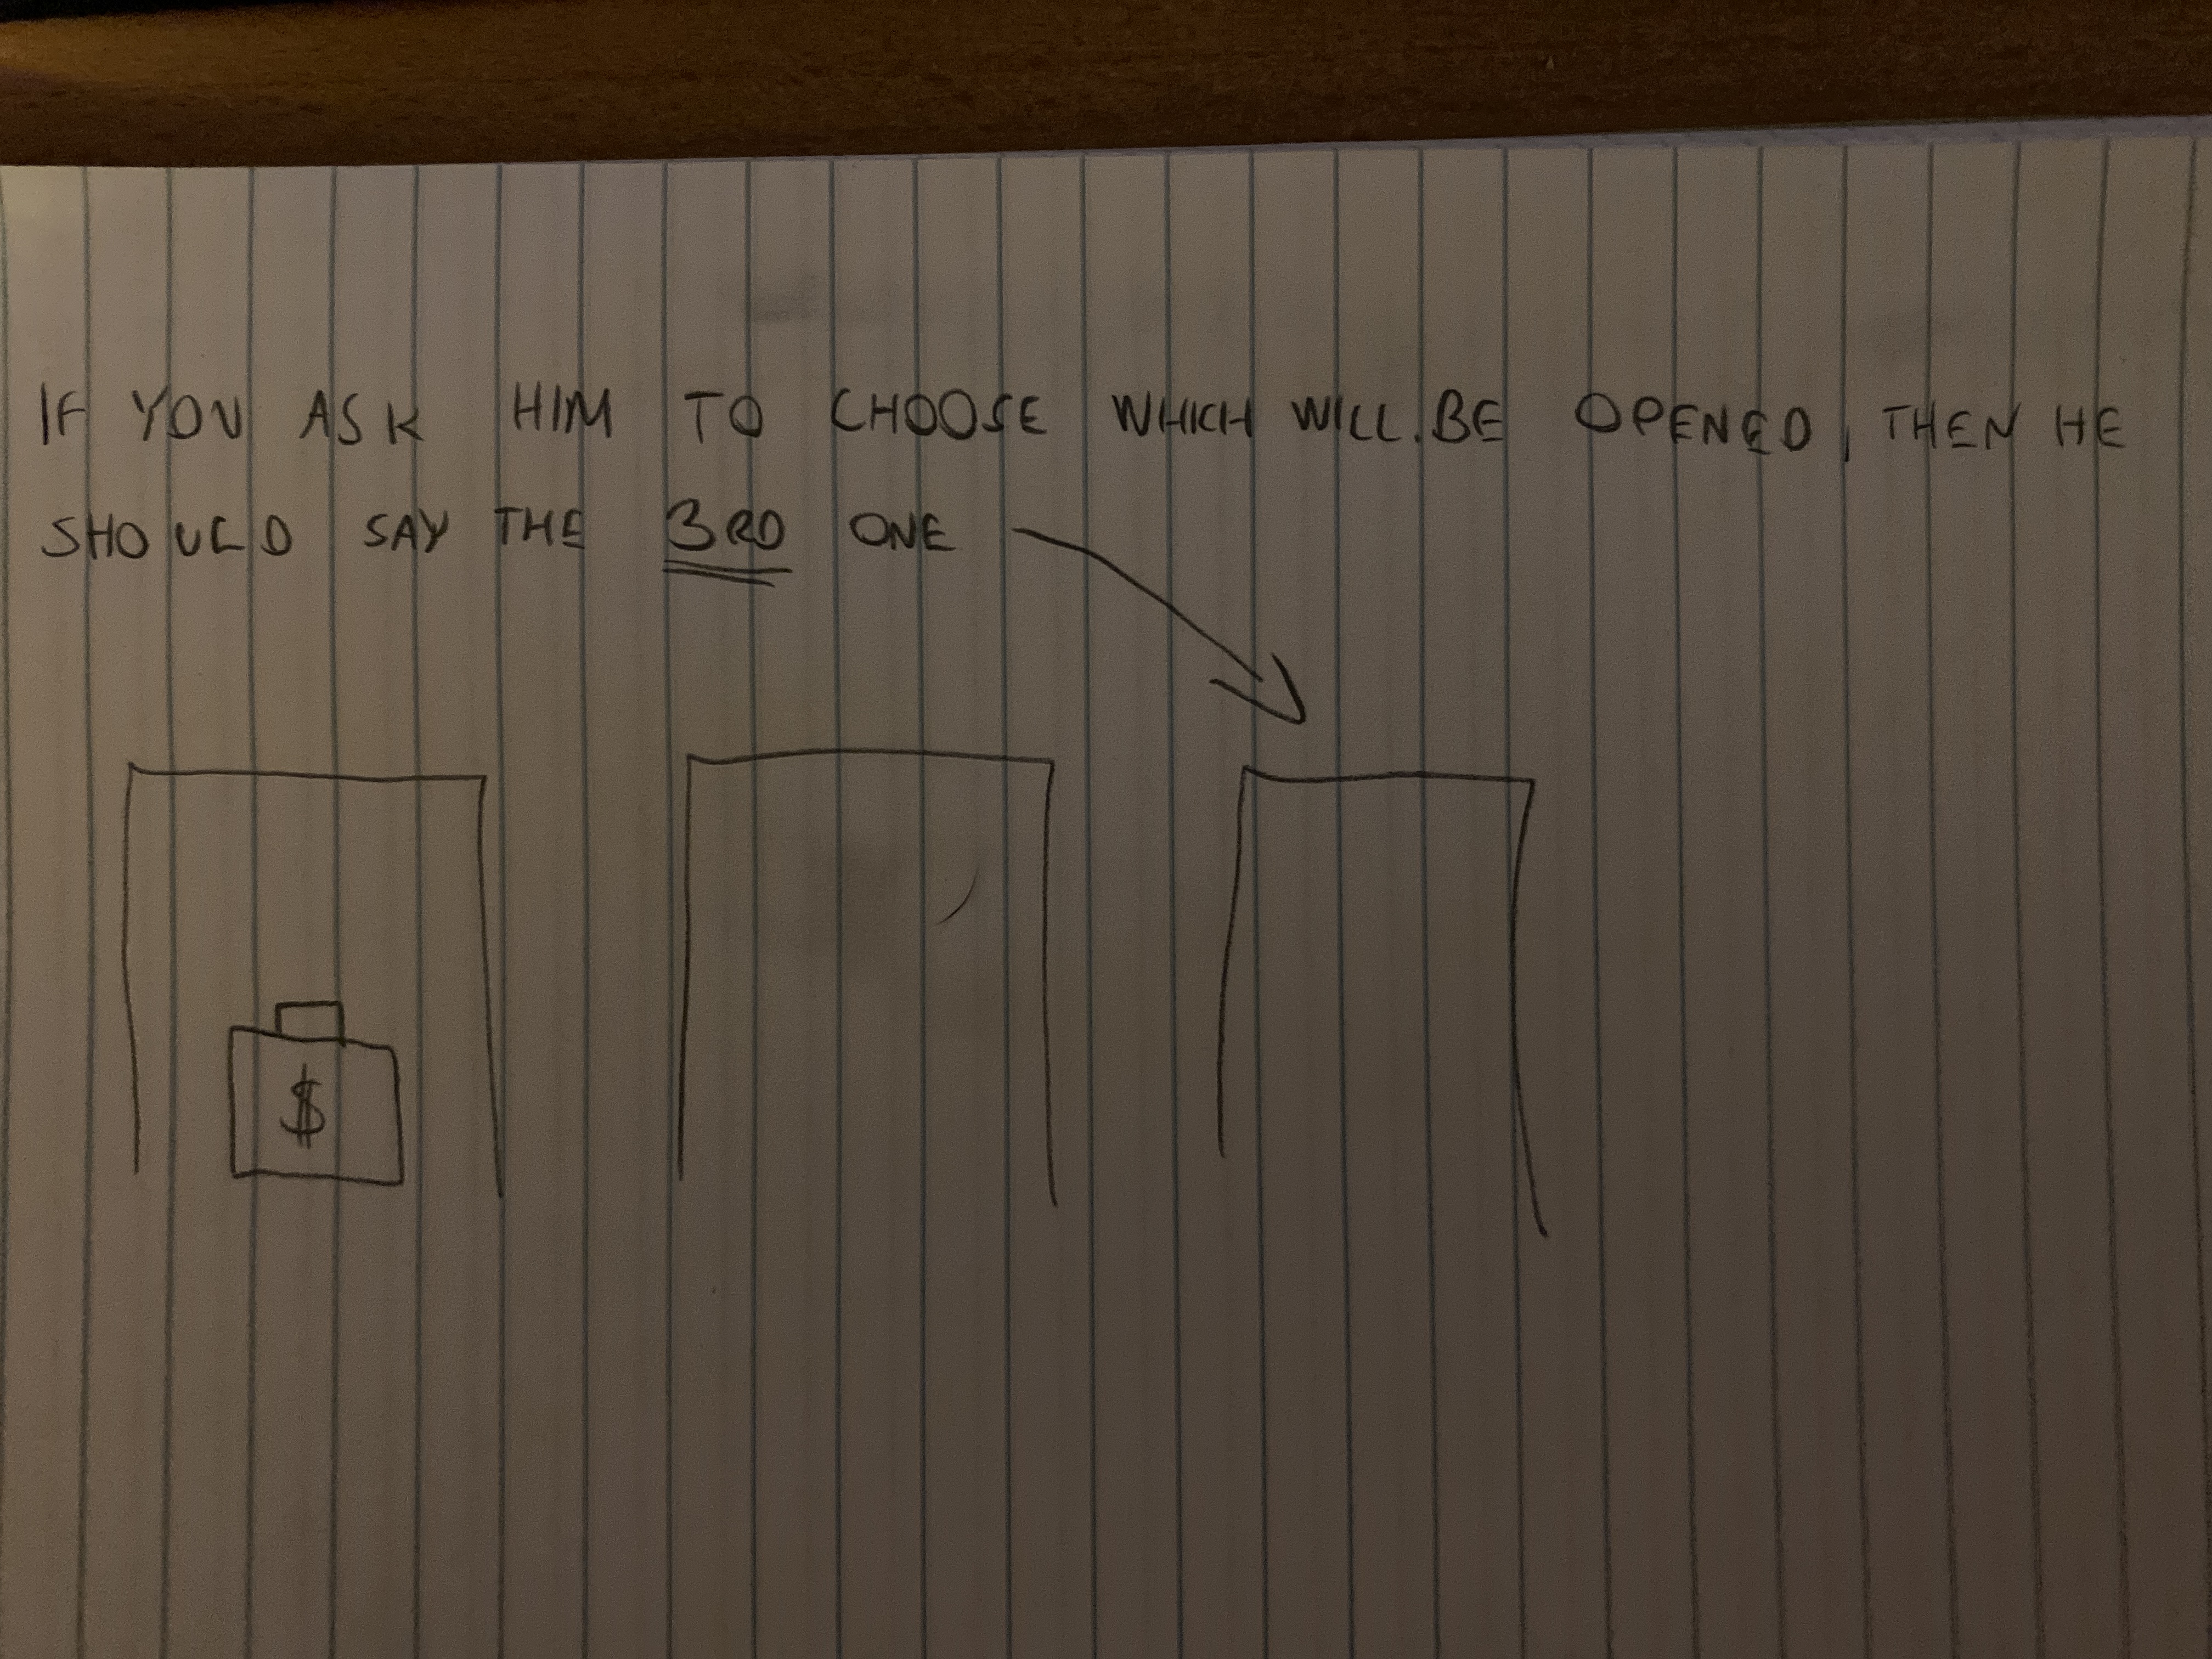 IF YOU ASK HIM TO CHOOSE WHICH WILL BE OPENED, THEN HE
SHOULD SAY THE 3RD ONE
$